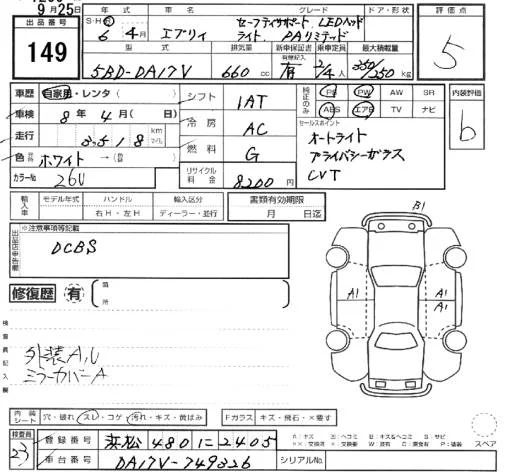 9月25日
出品番号
149
年式
S・H・R
6年4月
車名
エブリィ
グレード
セーフティサポート LEDヘッド
ライト、PAリミテッド
ドア・形状
評価点
5
型式
5BD-DA17V
排気量
660 cc
新車保証書
有
乗車定員
2/4人
最大積載量
350/250 kg
車歴
自家用・レンタ( )
車検
8年4月( 日)
走行
km
マイル
色
ホワイト →( )
カラーNo
26U
シフト
1AT
冷房
AC
燃料
G
リサイクル料金
8200円
純正のみ
PS PW AW SR
ABS エアB TV ナビ
セールスポイント
オートライト
プライバシーガラス
CVT
内装評価
b
輸入車
モデル年式
ハンドル
右H・左H
輸入区分
ディーラー・並行
書類有効期限
月 日迄
出品店申告欄
※注意事項等記載
DCBS
修復歴 有
箇所
検査員記入欄
外装A,U
ミラーカバーA
B1
A1
A1
内装シート
穴・破れ スレ・コゲ 汚れ・キズ・黄ばみ
Fガラス キズ・飛石・×要す
検査員
23
登録番号
浜松480に2405
車台番号
DA17V-749326
シリアルNo.
A:キズ U:ヘコミ B:キズ&ヘコミ S:サビ
スペア